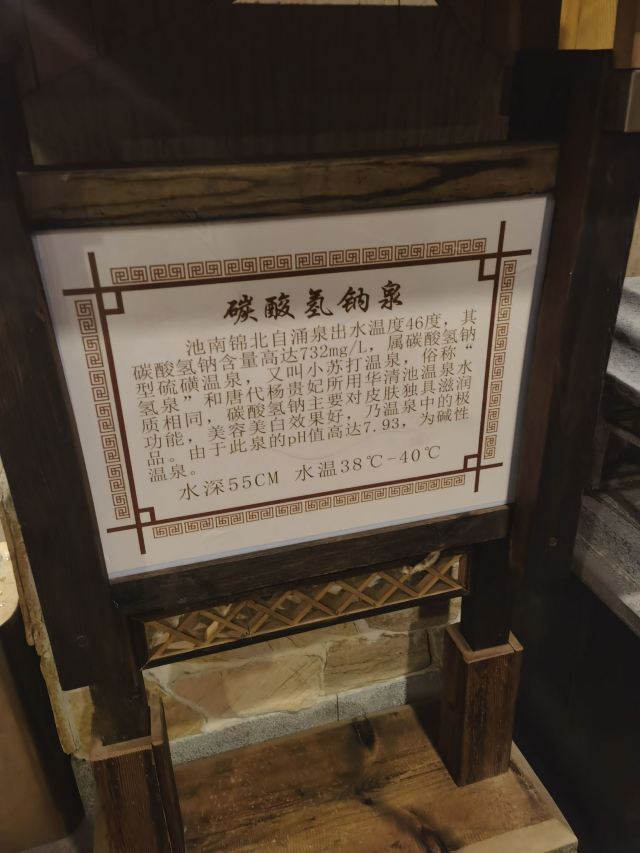 碳酸氢钠泉
池南锦北自涌泉出水温度46度，其
碳酸氢钠含量高达732mg/L，属碳酸氢钠
型硫磺温泉，又叫小苏打温泉，俗称“
氢泉”和唐代杨贵妃所用华清池温泉水
质相同，碳酸氢钠主要对皮肤独具滋润
功能，美容美白效果好，乃温泉中的极
品。由于此泉的pH值高达7.93，为碱性
温泉。
水深55CM 水温38℃-40℃